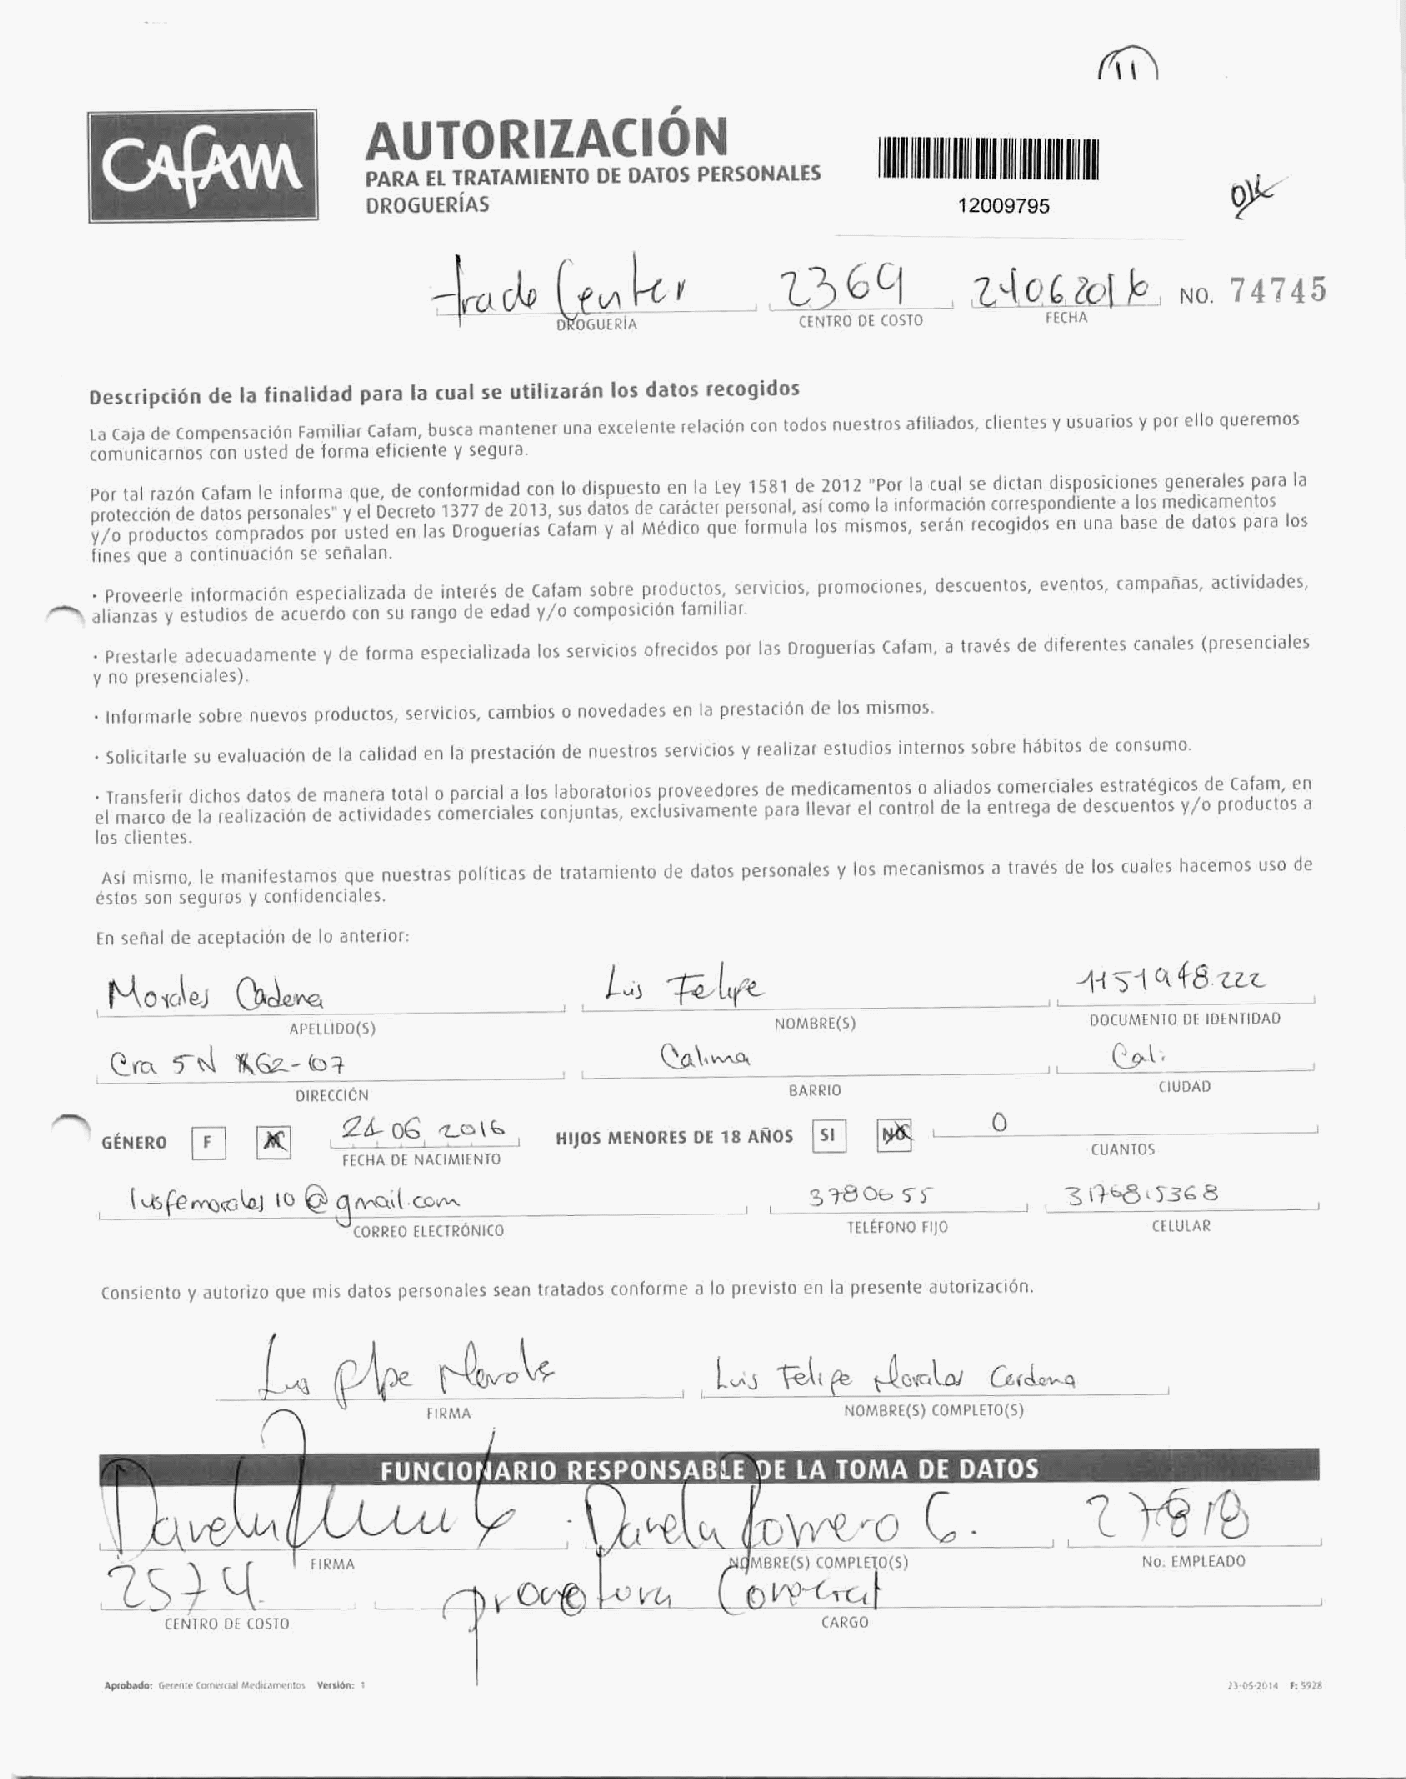 11
CAFAM
AUTORIZACIÓN
PARA EL TRATAMIENTO DE DATOS PERSONALES
DROGUERÍAS
12009795
OK
trade Center 2369 24062016 NO. 74745
DROGUERÍA CENTRO DE COSTO FECHA
Descripción de la finalidad para la cual se utilizarán los datos recogidos
La Caja de Compensación Familiar Cafam, busca mantener una excelente relación con todos nuestros afiliados, clientes y usuarios y por ello queremos
comunicarnos con usted de forma eficiente y segura.
Por tal razón Cafam le informa que, de conformidad con lo dispuesto en la Ley 1581 de 2012 "Por la cual se dictan disposiciones generales para la
protección de datos personales" y el Decreto 1377 de 2013, sus datos de carácter personal, así como la información correspondiente a los medicamentos
y/o productos comprados por usted en las Droguerías Cafam y al Médico que formula los mismos, serán recogidos en una base de datos para los
fines que a continuación se señalan.
· Proveerle información especializada de interés de Cafam sobre productos, servicios, promociones, descuentos, eventos, campañas, actividades,
alianzas y estudios de acuerdo con su rango de edad y/o composición familiar.
· Prestarle adecuadamente y de forma especializada los servicios ofrecidos por las Droguerías Cafam, a través de diferentes canales (presenciales
y no presenciales).
· Informarle sobre nuevos productos, servicios, cambios o novedades en la prestación de los mismos.
· Solicitarle su evaluación de la calidad en la prestación de nuestros servicios y realizar estudios internos sobre hábitos de consumo.
· Transferir dichos datos de manera total o parcial a los laboratorios proveedores de medicamentos o aliados comerciales estratégicos de Cafam, en
el marco de la realización de actividades comerciales conjuntas, exclusivamente para llevar el control de la entrega de descuentos y/o productos a
los clientes.
Así mismo, le manifestamos que nuestras políticas de tratamiento de datos personales y los mecanismos a través de los cuales hacemos uso de
éstos son seguros y confidenciales.
En señal de aceptación de lo anterior:
Morales Cadena Luis Felipe 1151948.222
APELLIDO(S) NOMBRE(S) DOCUMENTO DE IDENTIDAD
Cra 5N #62-107 Calima Cali
DIRECCIÓN BARRIO CIUDAD
GÉNERO F M 24 06 2016 HIJOS MENORES DE 18 AÑOS SI NO 0
FECHA DE NACIMIENTO CUANTOS
lusfemorales10@gmail.com 3780655 3176815368
CORREO ELECTRÓNICO TELÉFONO FIJO CELULAR
Consiento y autorizo que mis datos personales sean tratados conforme a lo previsto en la presente autorización.
Luis Felipe Morales Cardena
FIRMA NOMBRE(S) COMPLETO(S)
FUNCIONARIO RESPONSABLE DE LA TOMA DE DATOS
Daniela Romero G. 27818
FIRMA NOMBRE(S) COMPLETO(S) No. EMPLEADO
2574
CENTRO DE COSTO CARGO
Aprobado: Gerente Comercial Medicamentos Versión: 1 23-05-2014 F: 5928